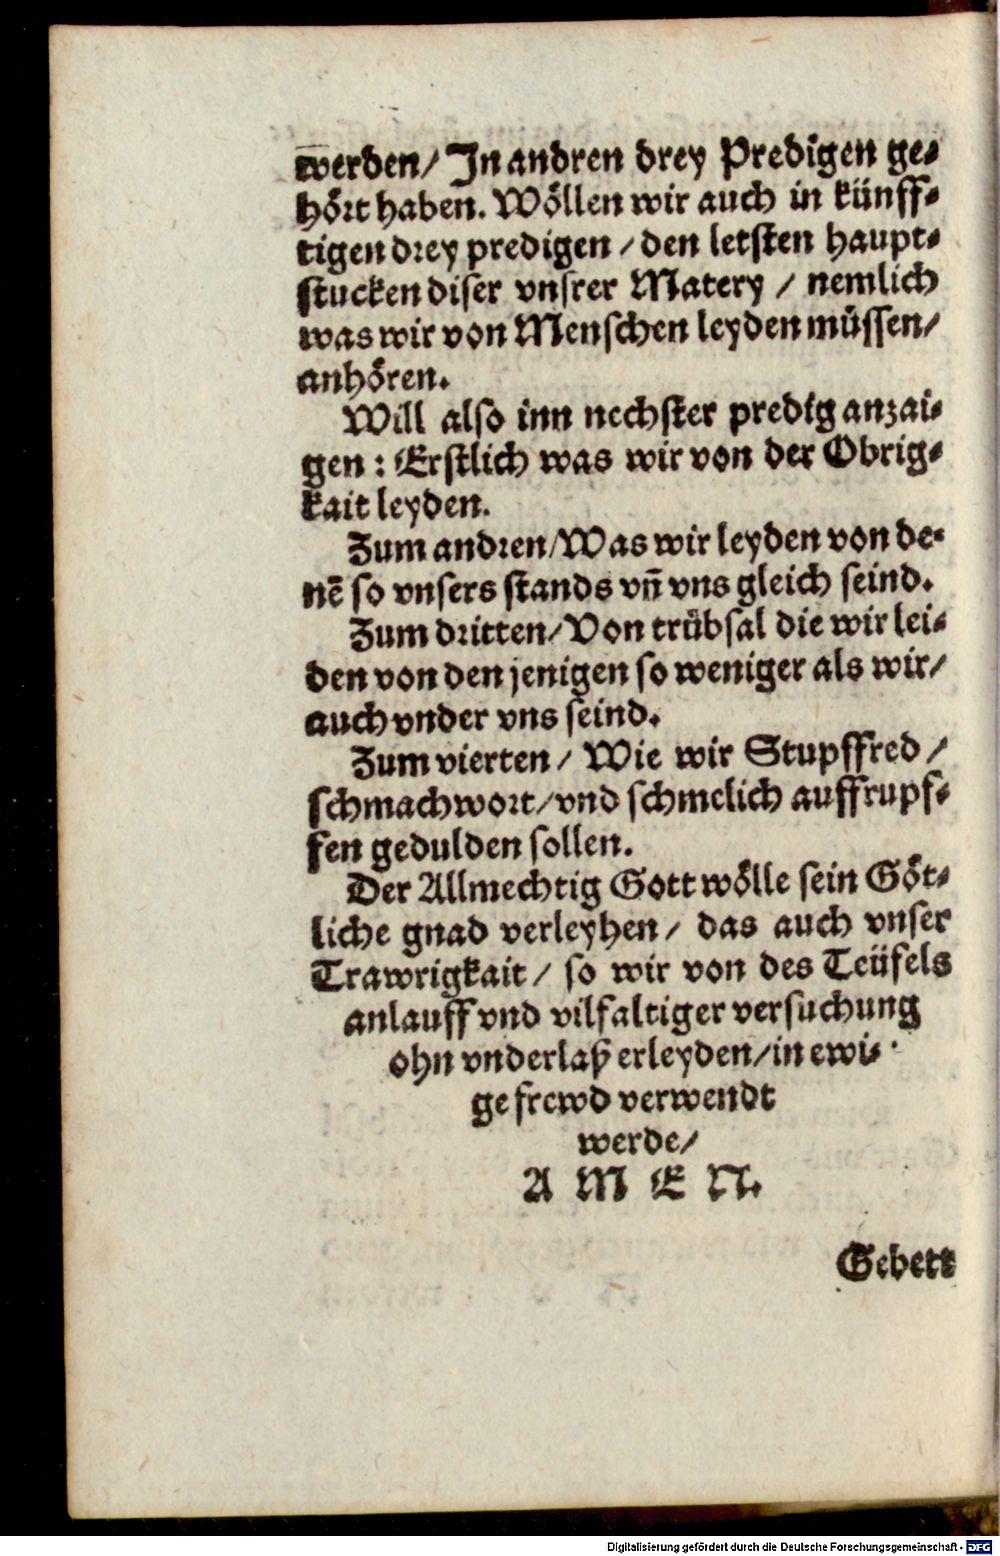 werden/ In andren drey Predigen ge⸗
hört haben. Wöllen wir auch in künff⸗
tigen drey predigen / den letsten haupt⸗
stucken diser vnsrer Matery / nemlich
was wir von Menschen leyden müssen/
anhören.
Will also inn nechster predig anzai⸗
gen : Erstlich was wir von der Obrig⸗
kait leyden.
Zum andren/ Was wir leyden von de⸗
nē so vnsers stands vn̄ vns gleich seind.
Zum dritten/ Von trübsal die wir lei⸗
den von den jenigen so weniger als wir/
auch vnder vns seind.
Zum vierten / Wie wir Stupffred /
schmachwort/ vnd schmelich auffrupf⸗
fen gedulden sollen.
Der Allmechtig Gott wölle sein Göt⸗
liche gnad verleyhen / das auch vnser
Trawrigkait / so wir von des Teüfels
anlauff vnd vilfaltiger versuchung
ohn vnderlaß erleyden/ in ewi⸗
ge frewd verwendt
werde/
A M E N.
Gebett
Digitalisierung gefördert durch die Deutsche Forschungsgemeinschaft - DFG